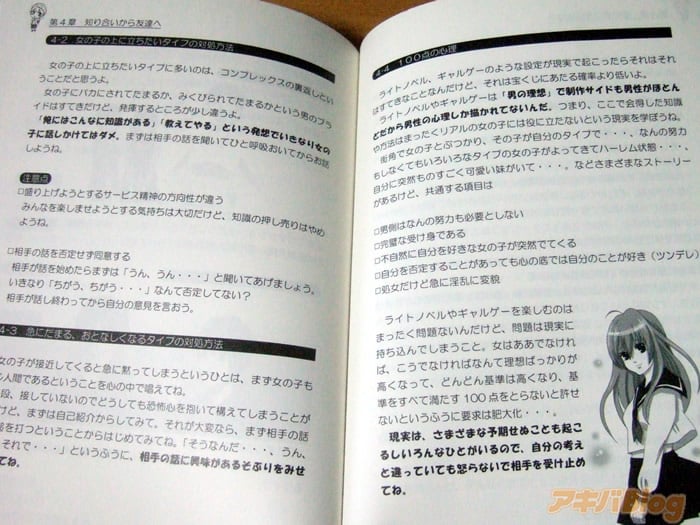 第4章 知り合いから友達へ
4-2 女の子の上に立ちたいタイプの対処方法
女の子の上に立ちたいタイプに多いのは、コンプレックスの裏返しとい
うことだと思うよ。
女の子にバカにされてたまるか、みくびられてたまるかという男のプラ
イドはすてきだけど、発揮するところが少し違うよ。
「俺にはこんなに知識がある」「教えてやる」という発想でいきなり女の
子に話しかけてはダメ。まずは相手の話を聞いてひと呼吸おいてからお話
しようね。
注意点
□盛り上げようとするサービス精神の方向性が違う
みんなを楽しませようとする気持ちは大切だけど、知識の押し売りはやめ
ようね。
□相手の話を否定せず同意する
相手が話を始めたらまずは「うん、うん・・・」と聞いてあげましょう。
いきなり「ちがう、ちがう・・・」なんて否定してない?
相手が話し終わってから自分の意見を言おう。
4-3 急にだまる、おとなしくなるタイプの対処方法
女の子が接近してくると急に黙ってしまうというひとは、まず女の子も
人間であるということを心の中で唱えてね。
段、接していないのでどうしても恐怖心を抱いて構えてしまうことが
けど、まずは自己紹介からしてみて。それが大変なら、まず相手の話
を打つということからはじめてみてね。「そうなんだ・・・、うん、
それで・・・」というふうに、相手の話に興味があるそぶりをみせ
てね。
4-4 100点の心理
ライトノベル、ギャルゲーのような設定が現実で起こったらそれはそれ
はすてきなことなんだけど、それは宝くじにあたる確率より低いよ。
ライトノベルやギャルゲーは「男の理想」で制作サイドも男性がほとん
どだから男性の心理しか描かれてないんだ。つまり、ここで会得した知識
や方法はまったくリアルの女の子には役に立たないという現実を学ぼうね。
街角で女の子とぶつかり、その子が自分のタイプで・・・、なんの努力
もしなくてもいろいろなタイプの女の子がよってきてハーレム状態・・・、
自分に突然ものすごく可愛い妹がいて・・・。などさまざまなストーリー
があるけど、共通する項目は
□男側はなんの努力も必要としない
□完璧な受け身である
□不自然に自分を好きな女の子が突然でてくる
□自分を否定することがあっても心の底では自分のことが好き（ツンデレ）
□処女だけど急に淫乱に変貌
ライトノベルやギャルゲーを楽しむのは
まったく問題ないんだけど、問題は現実に
持ち込んでしまうこと。女はああでなけれ
ば、こうでなければなんて理想ばっかりが
高くなって、どんどん基準は高くなり、基
準をすべて満たす100点をとらないと許せ
ないというふうに要求は肥大化・・・。
現実は、さまざまな予期せぬことも起こ
るしいろんなひとがいるので、自分の考え
と違っていても怒らないで相手を受け止め
てね。
アキバBlog